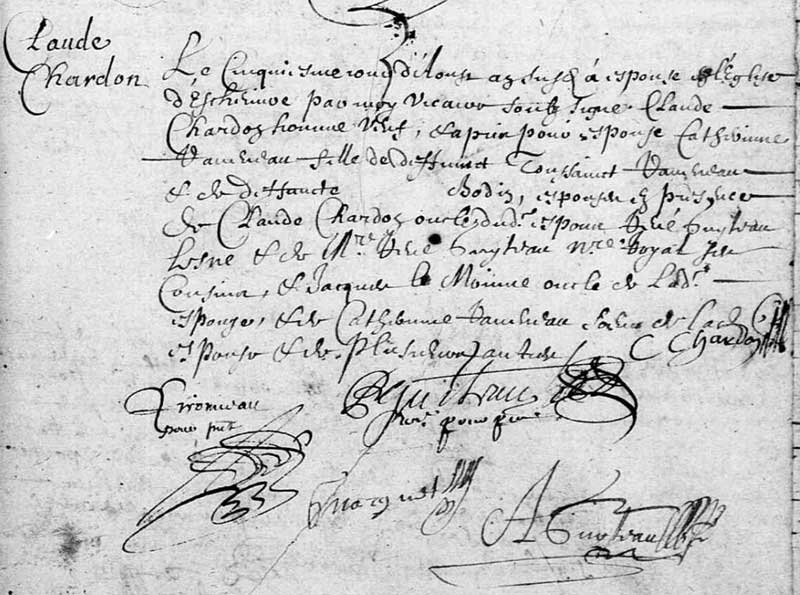 Claude
Chardon
Le Cinquiesme jour d'Aoust an susd a espouse en l'Eglise
d'Eschinvoe par moy vicaire soubz signe Claude
Chardon homme veuf, et a pris pour espouse Catherinne
fille de deffunct Toussainct
et de deffuncte Bodin, espousez en presence
de Claude Chardon oncle dud.t espoux René Guyteau
lesné et de M.re René Guyteau n.re Royal son
Cousins, et Jacques le Moinne oncle de lad.t
espouse, et de Catherinne soeur de lad
espouse et de plusieurs autres
C Chardon
pour p.nt
R Guiteau
pour p
Jnacquet
A Guyteau